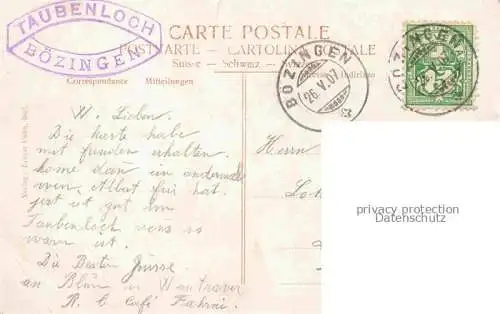 TAUBENLOCH
BÖZINGEN
CARTE POSTALE
POSTKARTE – CARTOLINA POSTALE
Suisse – Schweiz – Svizzera
Correspondance Mitteilungen
BÖZINGEN
26.V.07
W. Lieben.
Die Karte habe
mit freuden erhalten.
kome dan in andermal
wen Albat für hat.
jest ist gut im
Taubenloch wens so
warm ist.
Die Besten Grüsse
an
R. b Café Fahrni
Herrn
privacy protection
Datenschutz